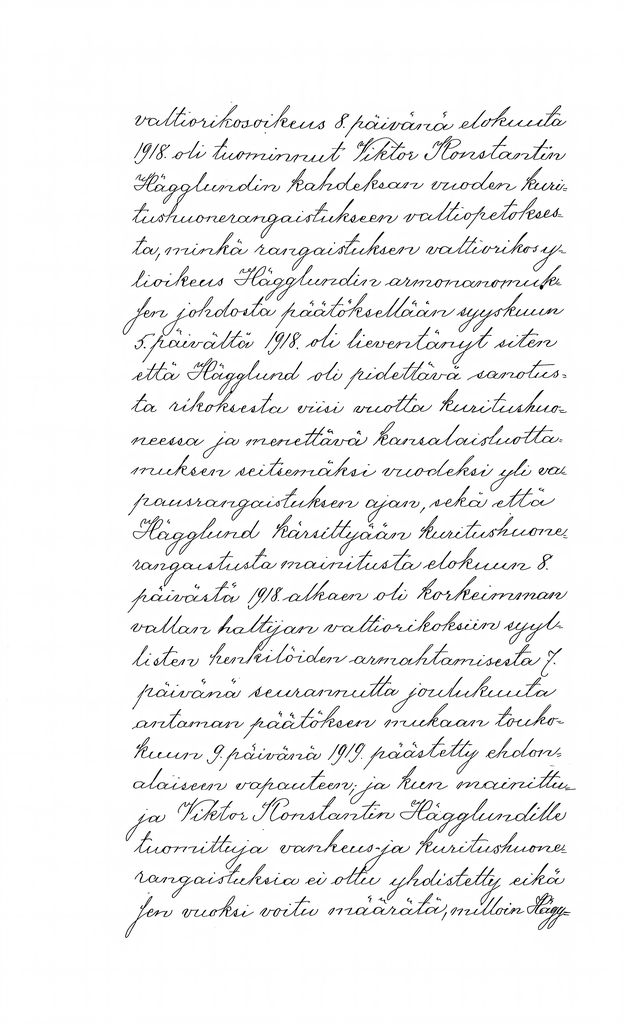 valtiorikosoikeus 8. päivänä elokuuta
1918. oli tuominnut Viktor Konstantin
Hägglundin kahdeksan vuoden kuri=
tushuonerangaistukseen valtiopetokses=
ta, minkä rangaistuksen valtiorikosy=
lioikeus Hägglundin armonanomuk=
sen johdosta päätöksellään syyskuun
5. päivältä 1918. oli lieventänyt siten
että Hägglund oli pidettävä sanotus=
ta rikoksesta viisi vuotta kuritushuo=
neessa ja menettävä kansalaisluotta=
muksen seitsemäksi vuodeksi yli va=
pausrangaistuksen ajan, sekä että
Hägglund kärsittyään kuritushuone=
rangaistusta mainitusta elokuun 8.
päivästä 1918. alkaen oli korkeimman
vallan haltijan valtiorikoksiin syyl=
listen henkilöiden armahtamisesta 7.
päivänä seurannutta joulukuuta
antaman päätöksen mukaan touko=
kuun 9. päivänä 1919. päästetty ehdon=
alaiseen vapauteen; ja kun mainittu=
ja Viktor Konstantin Hägglundille
tuomittuja vankeus- ja kuritushuone=
rangaistuksia ei oltu yhdistetty eikä
sen vuoksi voitu määrätä, milloin Hägg=